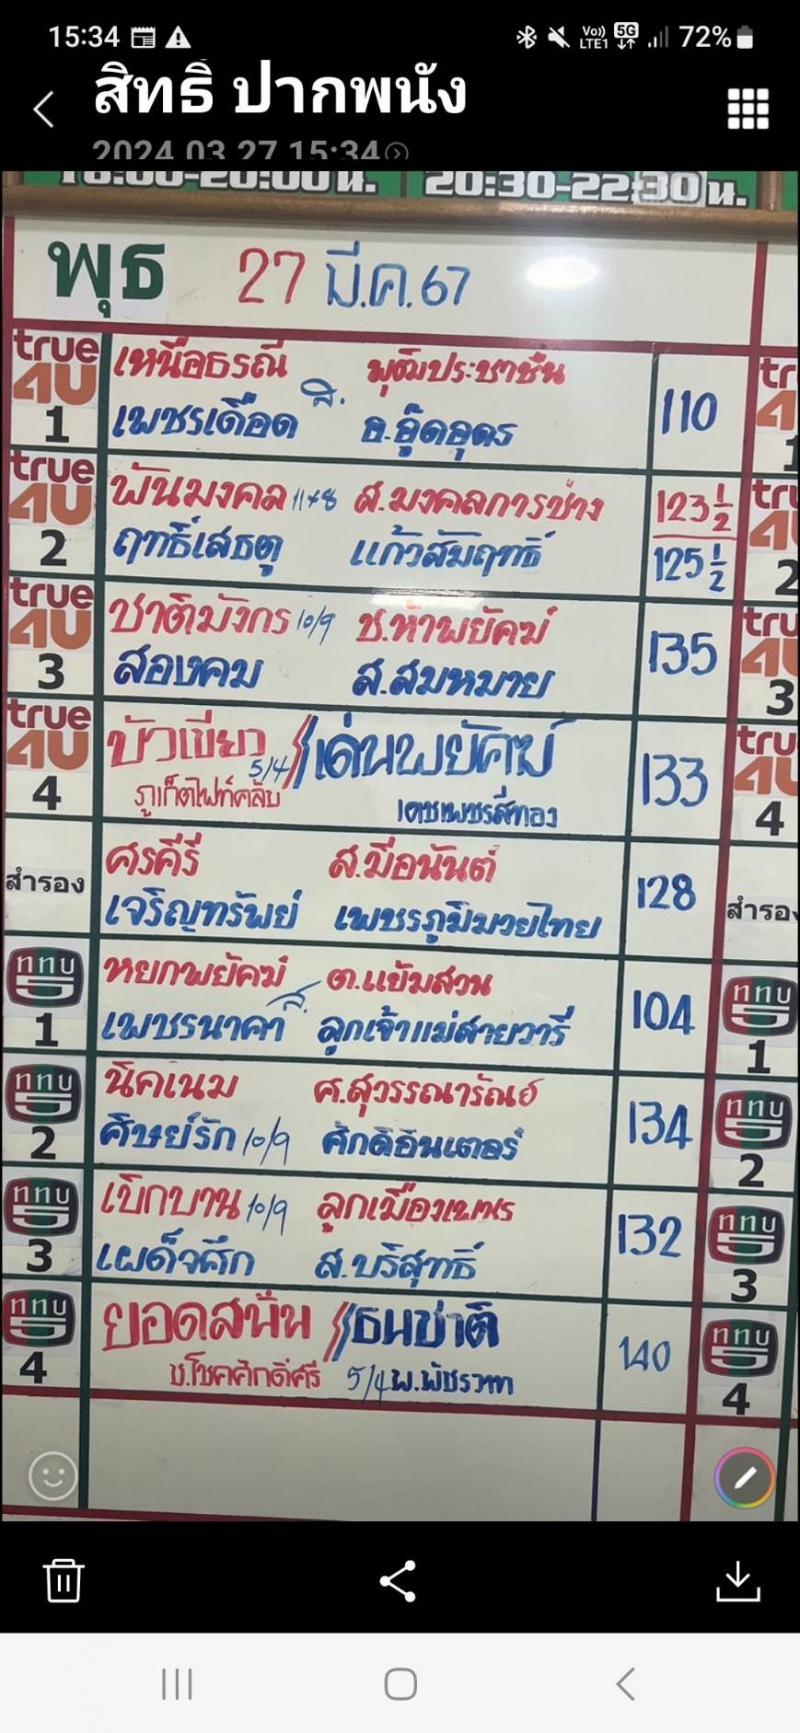 15:34 72%
สิทธิ ปากพนัง
2024.03.27 15:34
18:00-20:00 น. 20:30-22:30 น.
พุธ 27 มี.ค.67
true 4U 1 เหนือธรณี พุฒิประชาชื่น 110
เพชรเดือด ส. อ.อู๊ดอุดร
true 4U 2 พันมงคล 11+8 ส.มงคลการช่าง 123 1/2
ฤทธิ์เสธตู แก้วสัมฤทธิ์ 125 1/2
true 4U 3 ชาติมังกร 10/9 ช.ห้าพยัคฆ์ 135
สองคม ส.สมหมาย
true 4U 4 บัวเขียว // เด่นพยัคฆ์ 133
ภูเก็ตไฟท์คลับ 5/4 เดชเพชรสีทอง
สำรอง ศรคีรี ส.มีอนันต์ 128
เจริญทรัพย์ เพชรภูมิมวยไทย
ททบ 5 1 หยกพยัคฆ์ ต.แย้มสวน 104
เพชรนาคา ส. ลูกเจ้าแม่สายวารี
ททบ 5 2 นิคเนม ศ.สุวรรณารัณย์ 134
ศิษย์รัก 10/9 ศักดิ์อินเตอร์
ททบ 5 3 เบิกบาน 10/9 ลูกเมืองเพชร 132
เผด็จศึก ส.บริสุทธิ์
ททบ 5 4 ยอดสนั่น // ธนชาติ 140
ช.โชคศักดิ์ศรี 5/4 พ.พัชรวาท